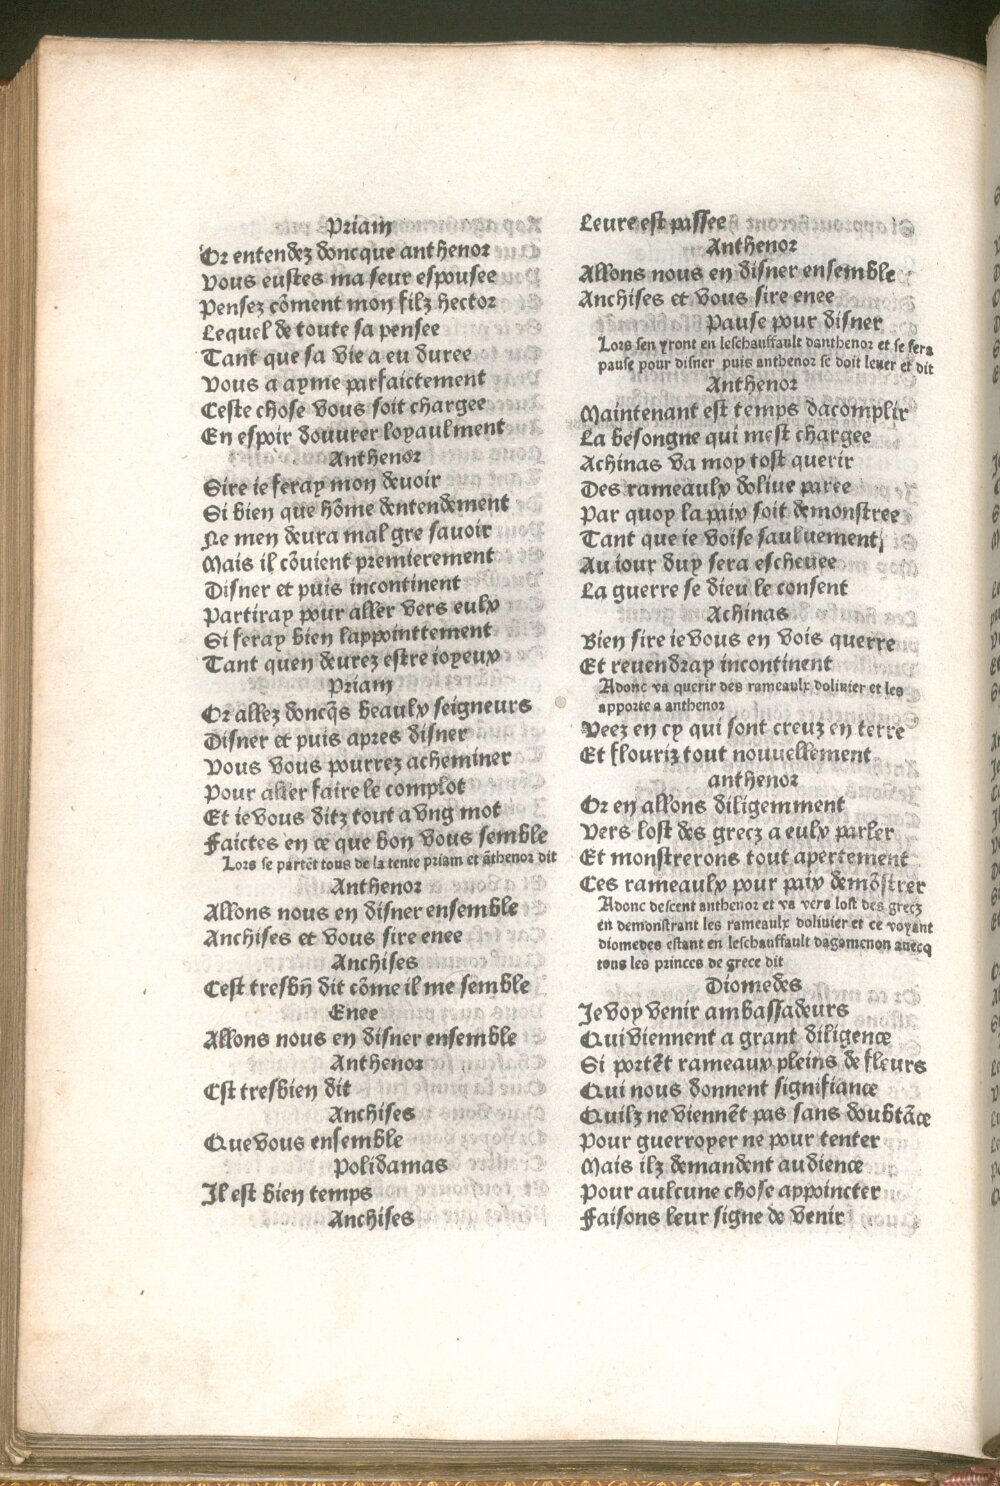 Priam
Or entendez doncque anthenor
Vous eustes ma seur espousee
Pensez cōment mon filz hector
Lequel de toute sa pensee
Tant que sa vie a eu duree
Vous a ayme parfaictement
Ceste chose vous soit chargee
En espoir douurer loyaulment
Anthenor
Sire ie feray mon deuoir
Si bien que hōme dentendement
Ne men deura mal gre sauoir
Mais il cōuient premierement
Disner et puis incontinent
Partiray pour aller vers eulx
Si feray bien lappointtement
Tant quen deurez estre ioyeux
Priam
Or allez doncq̄s beaulx seigneurs
Disner et puis apres disner
Vous vous pourrez acheminer
Pour aller faire le complot
Et ie vous ditz tout a vng mot
Faictes en ce que bon vous semble
Lors se partēt tous de la tente priam et āthenor dit
Anthenor
Allons nous en disner ensemble
Anchises et vous sire enee
Anchises
Cest tresbn̄ dit cōme il me semble
Enee
Allons nous en disner ensemble
Anthenor
Cst tresbien dit
Anchises
Que vous ensemble
Polidamas
Il est bien temps
Anchises
Leure est passee
Anthenor
Allons nous en disner ensemble
Anchises et vous sire enee
Pause pour disner
Lors sen yront en leschauffault danthenor et se fera
pause pour disner puis anthenor se doit leuer et dit
Anthenor
Maintenant est temps dacomplir
La besongne qui mest chargee
Achinas va moy tost querir
Des rameaulx doliue paree
Par quoy la paix soit demonstree
Tant que ie voise sauluement
Au iour duy sera escheuee
La guerre se dieu le consent
Achinas
Bien sire ie vous en vois querre
Et reuendray incontinent
Adonc va querir des rameaulx dolinier et les
apporte a anthenor
Veez en cy qui sont creuz en terre
Et flouriz tout nouuellement
anthenor
Or en allons diligemment
Vers lost des grecz a eulx parler
Et monstrerons tout apertement
Ces rameaulx pour paix demōstrer
Adonc descent anthenor et va vers lost des grecz
en demonstrant les rameaulx dolinier et ce voyant
diomedes estant en leschauffault dagamenon auecq
tous les princes de grece dit
Diomedes
Ie voy venir ambassadeurs
Qui viennent a grant diligence
Si portēt rameaux pleins de fleurs
Qui nous donnent signifiance
Quilz ne viennēt pas sans doubtāce
Pour guerroyer ne pour tenter
Mais ilz demandent audience
Pour aulcune chose appoincter
Faisons leur signe de venir